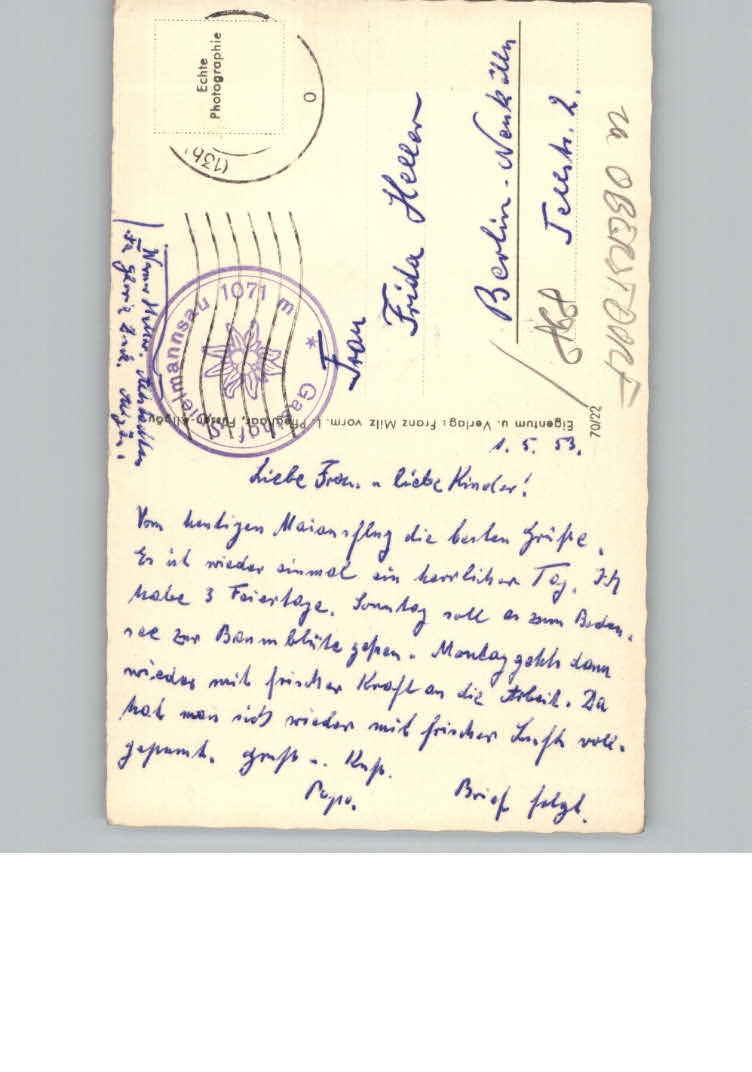 Echte
Photographie
(13b)
Spielmannsau 1071 m * Gasthof
Frau
Frida Heller
Berlin-Neukölln
Tellstr. 2.
za OBERSTDORF
Eigentum u. Verlag: Franz Milz vorm. L. Füssen-Allgäu
70/22
1. 5. 53.
Liebe Frau u liebe Kinder!
Vom heutigen Maiausflug die besten Grüße.
Es ist wieder einmal ein herrlicher Tag. Ich
habe 3 Feiertage. Sonntag soll es zum Boden-
see zur Baumblüte gehen. Montag gehts dann
wieder mit frischer Kraft an die Arbeit. Da
hat man sich wieder mit frischer Luft voll-
gepumt. Gruß u. Kuß.
Papa.
Brief folgt.